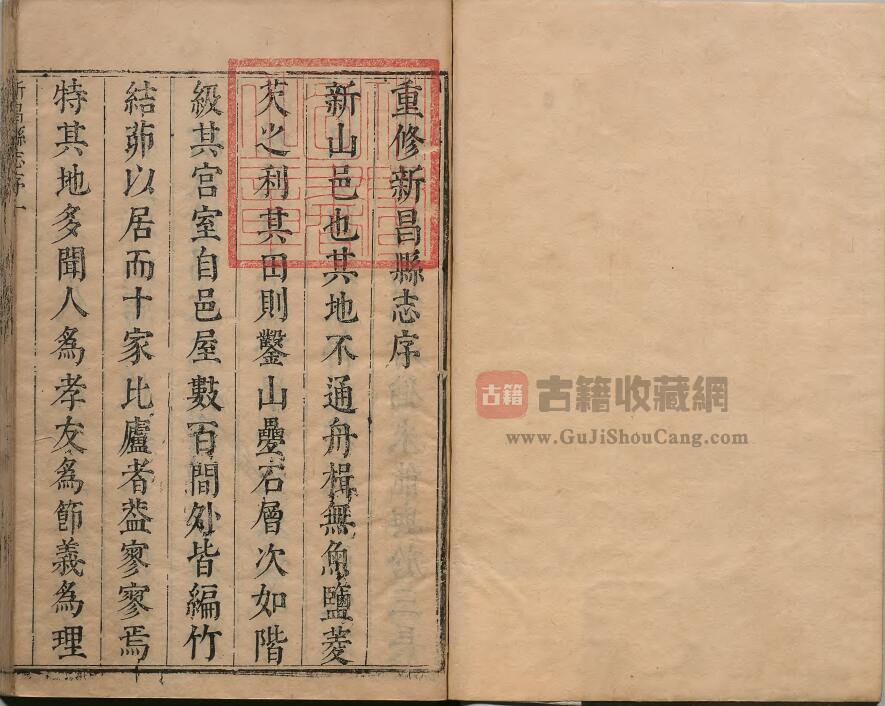 重修新昌縣志序
新山邑也其地不通舟楫無魚鹽菱
芡之利其田則鑿山疊石層次如階
級其宮室自邑屋數百間外皆編竹
結茆以居而十家比廬者葢寥寥焉
特其地多聞人為孝友為節義為理
新昌縣志序一
古籍
古籍收藏網
www.GuJiShouCang.com